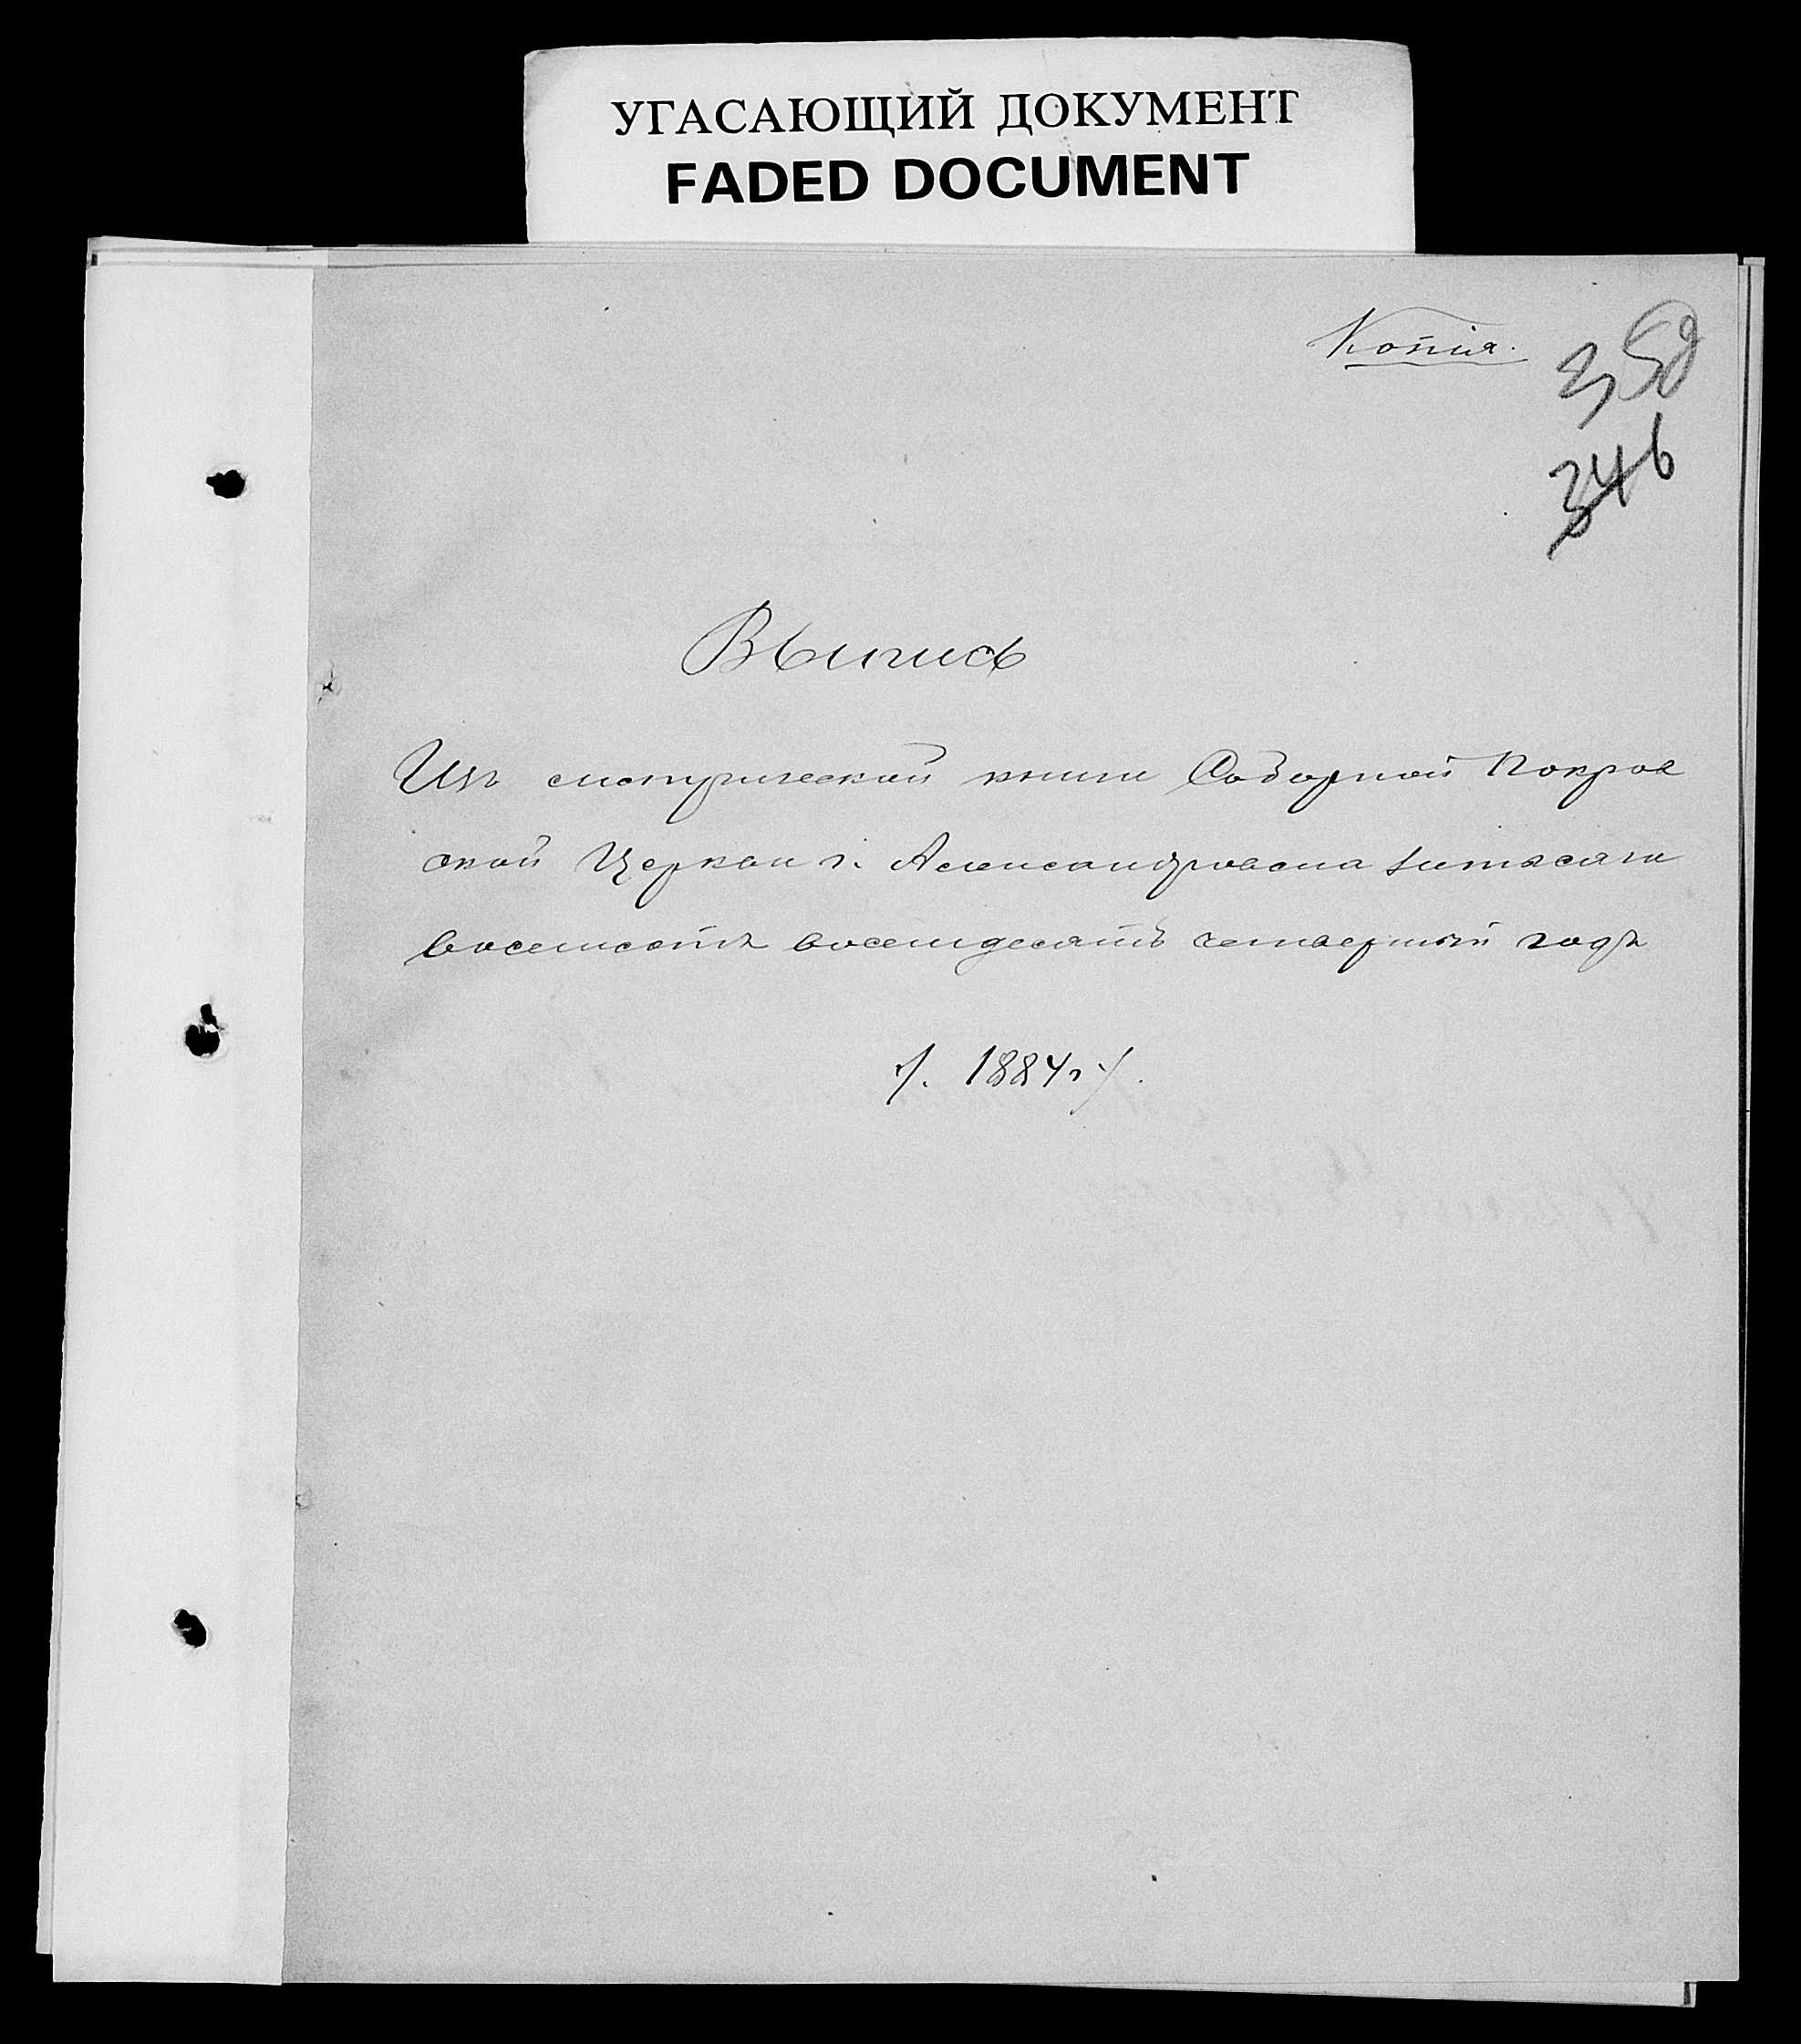 УГАСАЮЩИЙ ДОКУМЕНТ
FADED DOCUMENT
Копія.
346
Выпись
Изъ метрической книги Соборной Покров
ской Церкви г. Александровска тысяча
восемсотъ восемдесятъ четвертый годъ
/. 1884 г /.